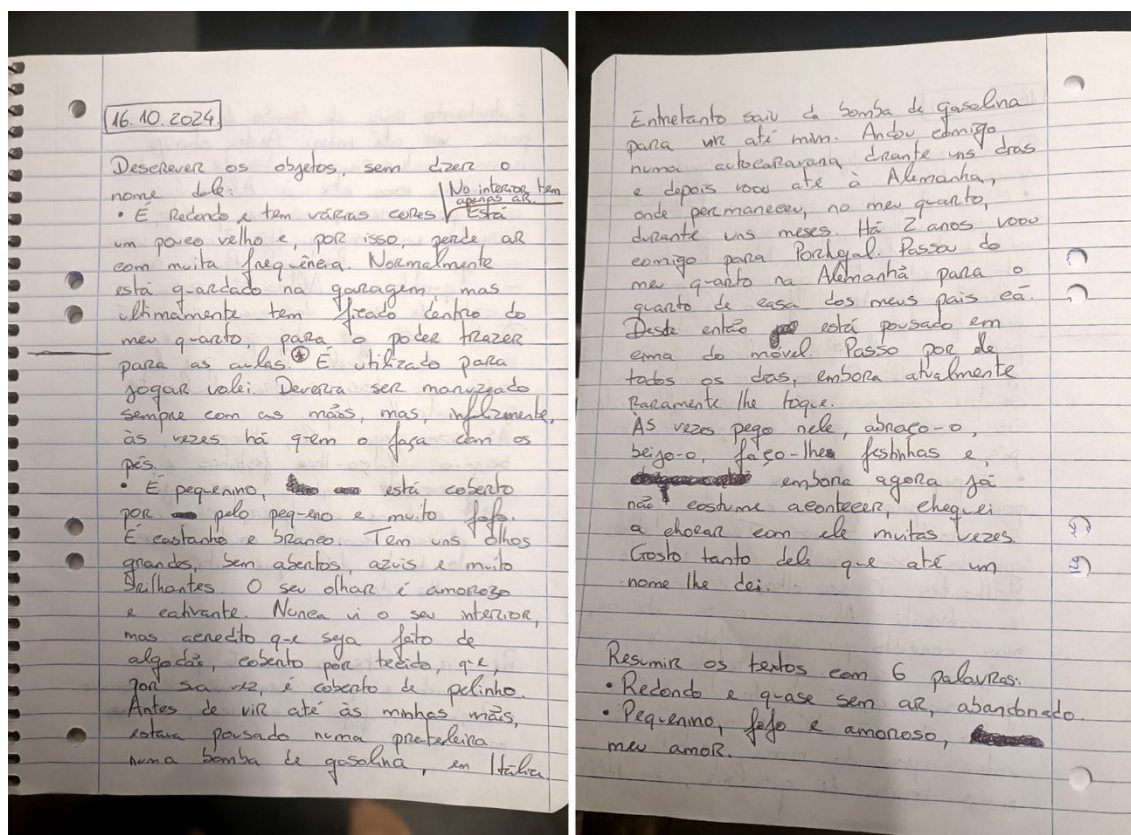 16.10.2024
Descrever os objetos, sem dizer o
nome dele:
• É Redondo e tem várias cores Está
No interior tem
apenas ar.
um pouco velho e, por isso, perde ar
com muita frequência. Normalmente
está guardado na garagem mas
ultimamente tem ficado dentro do
meu quarto, para o poder trazer
para as aulas. * É utilizado para
jogar volei. Deveria ser manuzeado
sempre com as mãos, mas, infelizmente,
às vezes há quem o faça com os
pés.
• É pequenino, está coberto
por pelo pequeno e muito fofo.
É castanho e branco. Tem uns olhos
grandes, bem abertos, azuis e muito
brilhantes. O seu olhar é amorozo
e cativante. Nunca vi o seu interior,
mas acredito que seja feito de
algodão, coberto por tecido, que,
por sua vez, é coberto de pelinho.
Antes de vir até às minhas mãos,
estava pousado numa prateleira
numa bomba de gasolina, em Itália.
Entretanto saiu da bomba de gasolina
para vir até mim. Andou comigo
numa autocaravana durante uns dias
e depois voou até à Alemanha,
onde permaneceu, no meu quarto,
durante uns meses. Há 2 anos voou
comigo para Portugal. Passou do
meu quarto na Alemanha para o
quarto de casa dos meus pais cá.
Desde então está pousado em
cima do móvel. Passo por ele
todos os dias, embora atualmente
Raramente lhe toque.
Às vezes pego nele, abraço-o,
beijo-o, faço-lhe festinhas e,
embora agora já
não costume acontecer, cheguei
a chorar com ele muitas vezes.
Gosto tanto dele que até um
nome lhe dei.
Resumir os textos com 6 palavras:
• Redondo e quase sem ar, abandonado.
• Pequenino, fofo e amoroso,
meu amor.